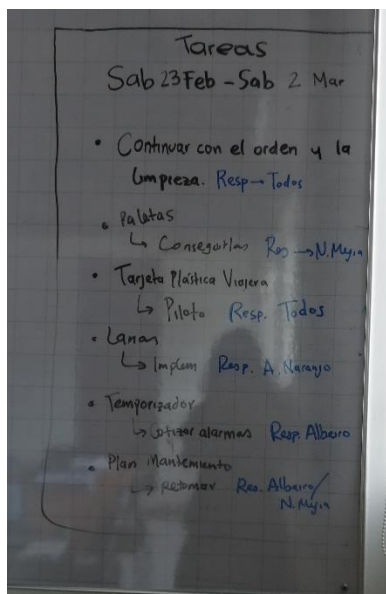 Tareas
Sab 23 Feb - Sab 2 Mar
• Continuar con el orden y la
limpieza. Resp → Todos
• Paletas
↳ Conseguirlas Res → N. Mejia
• Tarjeta Plástica Viajera
↳ Piloto Resp. Todos
• Lanas
↳ Implem Resp. A. Naranjo
• Temporizador
↳ Cotizar alarmas Resp. Albeiro
• Plan Mantemiento
↳ Retomar Res. Albeiro/
N. Mejia